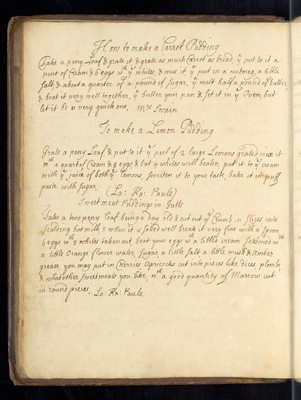 How to make a Carrot Pudding
Take a peny Loaf & grate it & grate as much Carrot as bread, yn put to it a
pint of Cream & 6 eggs wth ye whites, & mix it, yn put in a nutmeg, a little
salt & about a quarter of a pound of sugar, yn melt half a pound of butter
& beat it very well together, yn butter your pan & set it in ye Oven, but
let it be no very quick one, Mrs
To make a Lemon Pudding
Grate a peny Loaf, & put to it ye peel of 2 large Lemons grated, mix it
wth a quart of Cream & 9 eggs & but 4 whites well beaten, put it to ye cream
with ye juice of both ye Lemons sweeten it to your tast, bake it in puff
paste with sugar.
(La: Ha: Paule)
Sweetmeat Puddings in Gutts
Take a two peny Loaf being a day old & cut out ye Crumb in slices into
scalding hot milk & when it is soked well break it very fine with a spoon
6 eggs wth 2 whites taken out, beat your eggs wth a little cream, seasoned wth
a little Orange flower water, sugar, a little salt a little musk & amber
grease, you may put in Cherries Apricocks cut into pieces like dices, plombs
& what other sweetmeats you like, wth a good quantity of Marrow cut
in round pieces. La: Ha: Paule